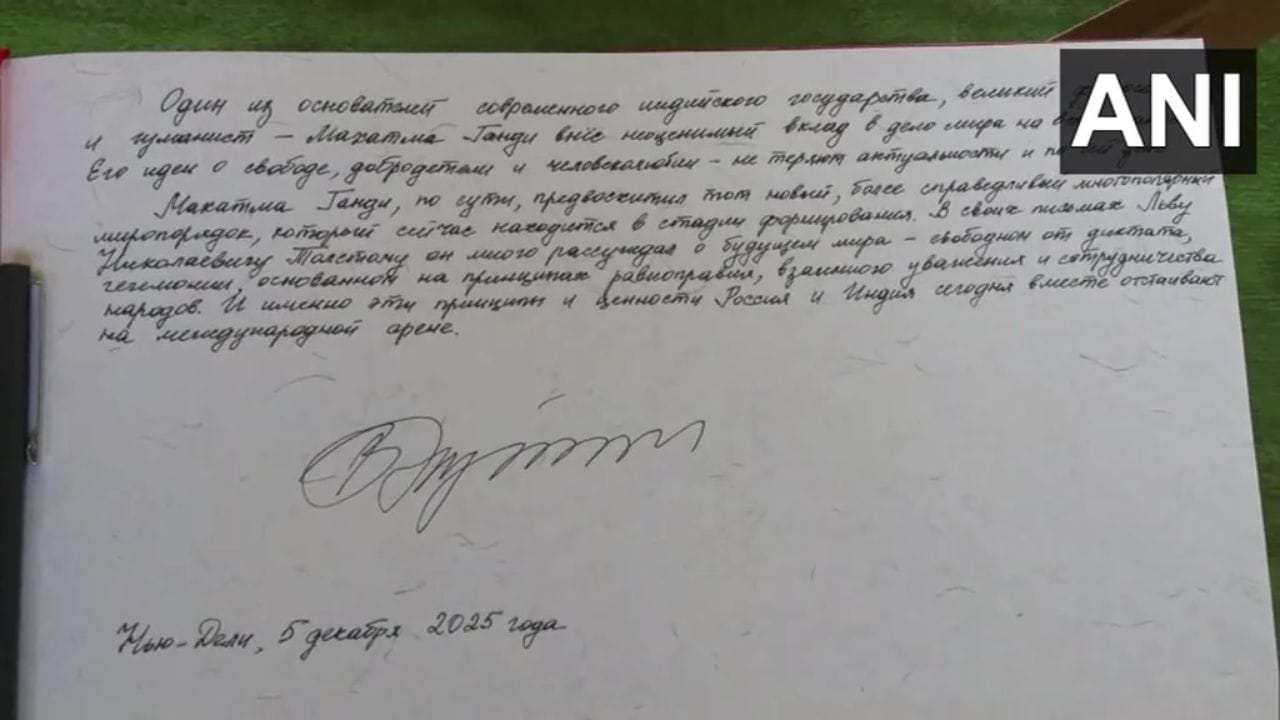 Один из основателей современного индийского государства, великий
и гуманист – Махатма Ганди внёс неоценимый вклад в дело мира на
Его идеи о свободе, добродетели и человеколюбии – не теряют актуальности и по
Махатма Ганди, по сути, предвосхитил тот новый, более справедливый многополярный
миропорядок, который сейчас находится в стадии формирования. В своих письмах Льву
Николаевичу Толстому он много рассуждал о будущем мира – свободном от диктата,
гегемонии, основанном на принципах равноправия, взаимного уважения и сотрудничества
народов. И именно эти принципы и ценности Россия и Индия сегодня вместе отстаивают
на международной арене.
Нью-Дели, 5 декабря 2025 года
ANI